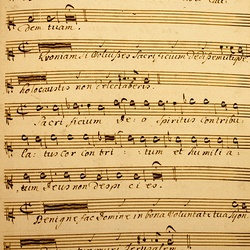 dem tuam.
Quoniam si voluisses Sacrificium dedissem utique
holocaustis non delectaberis.
Sacri ficium De: o spiritus contribu:
la: tus cor contri: tum et humilia:
tum Deus non despi ci es.
Benigne fac Domine in bona Voluntate tua Sion
Jerusalem